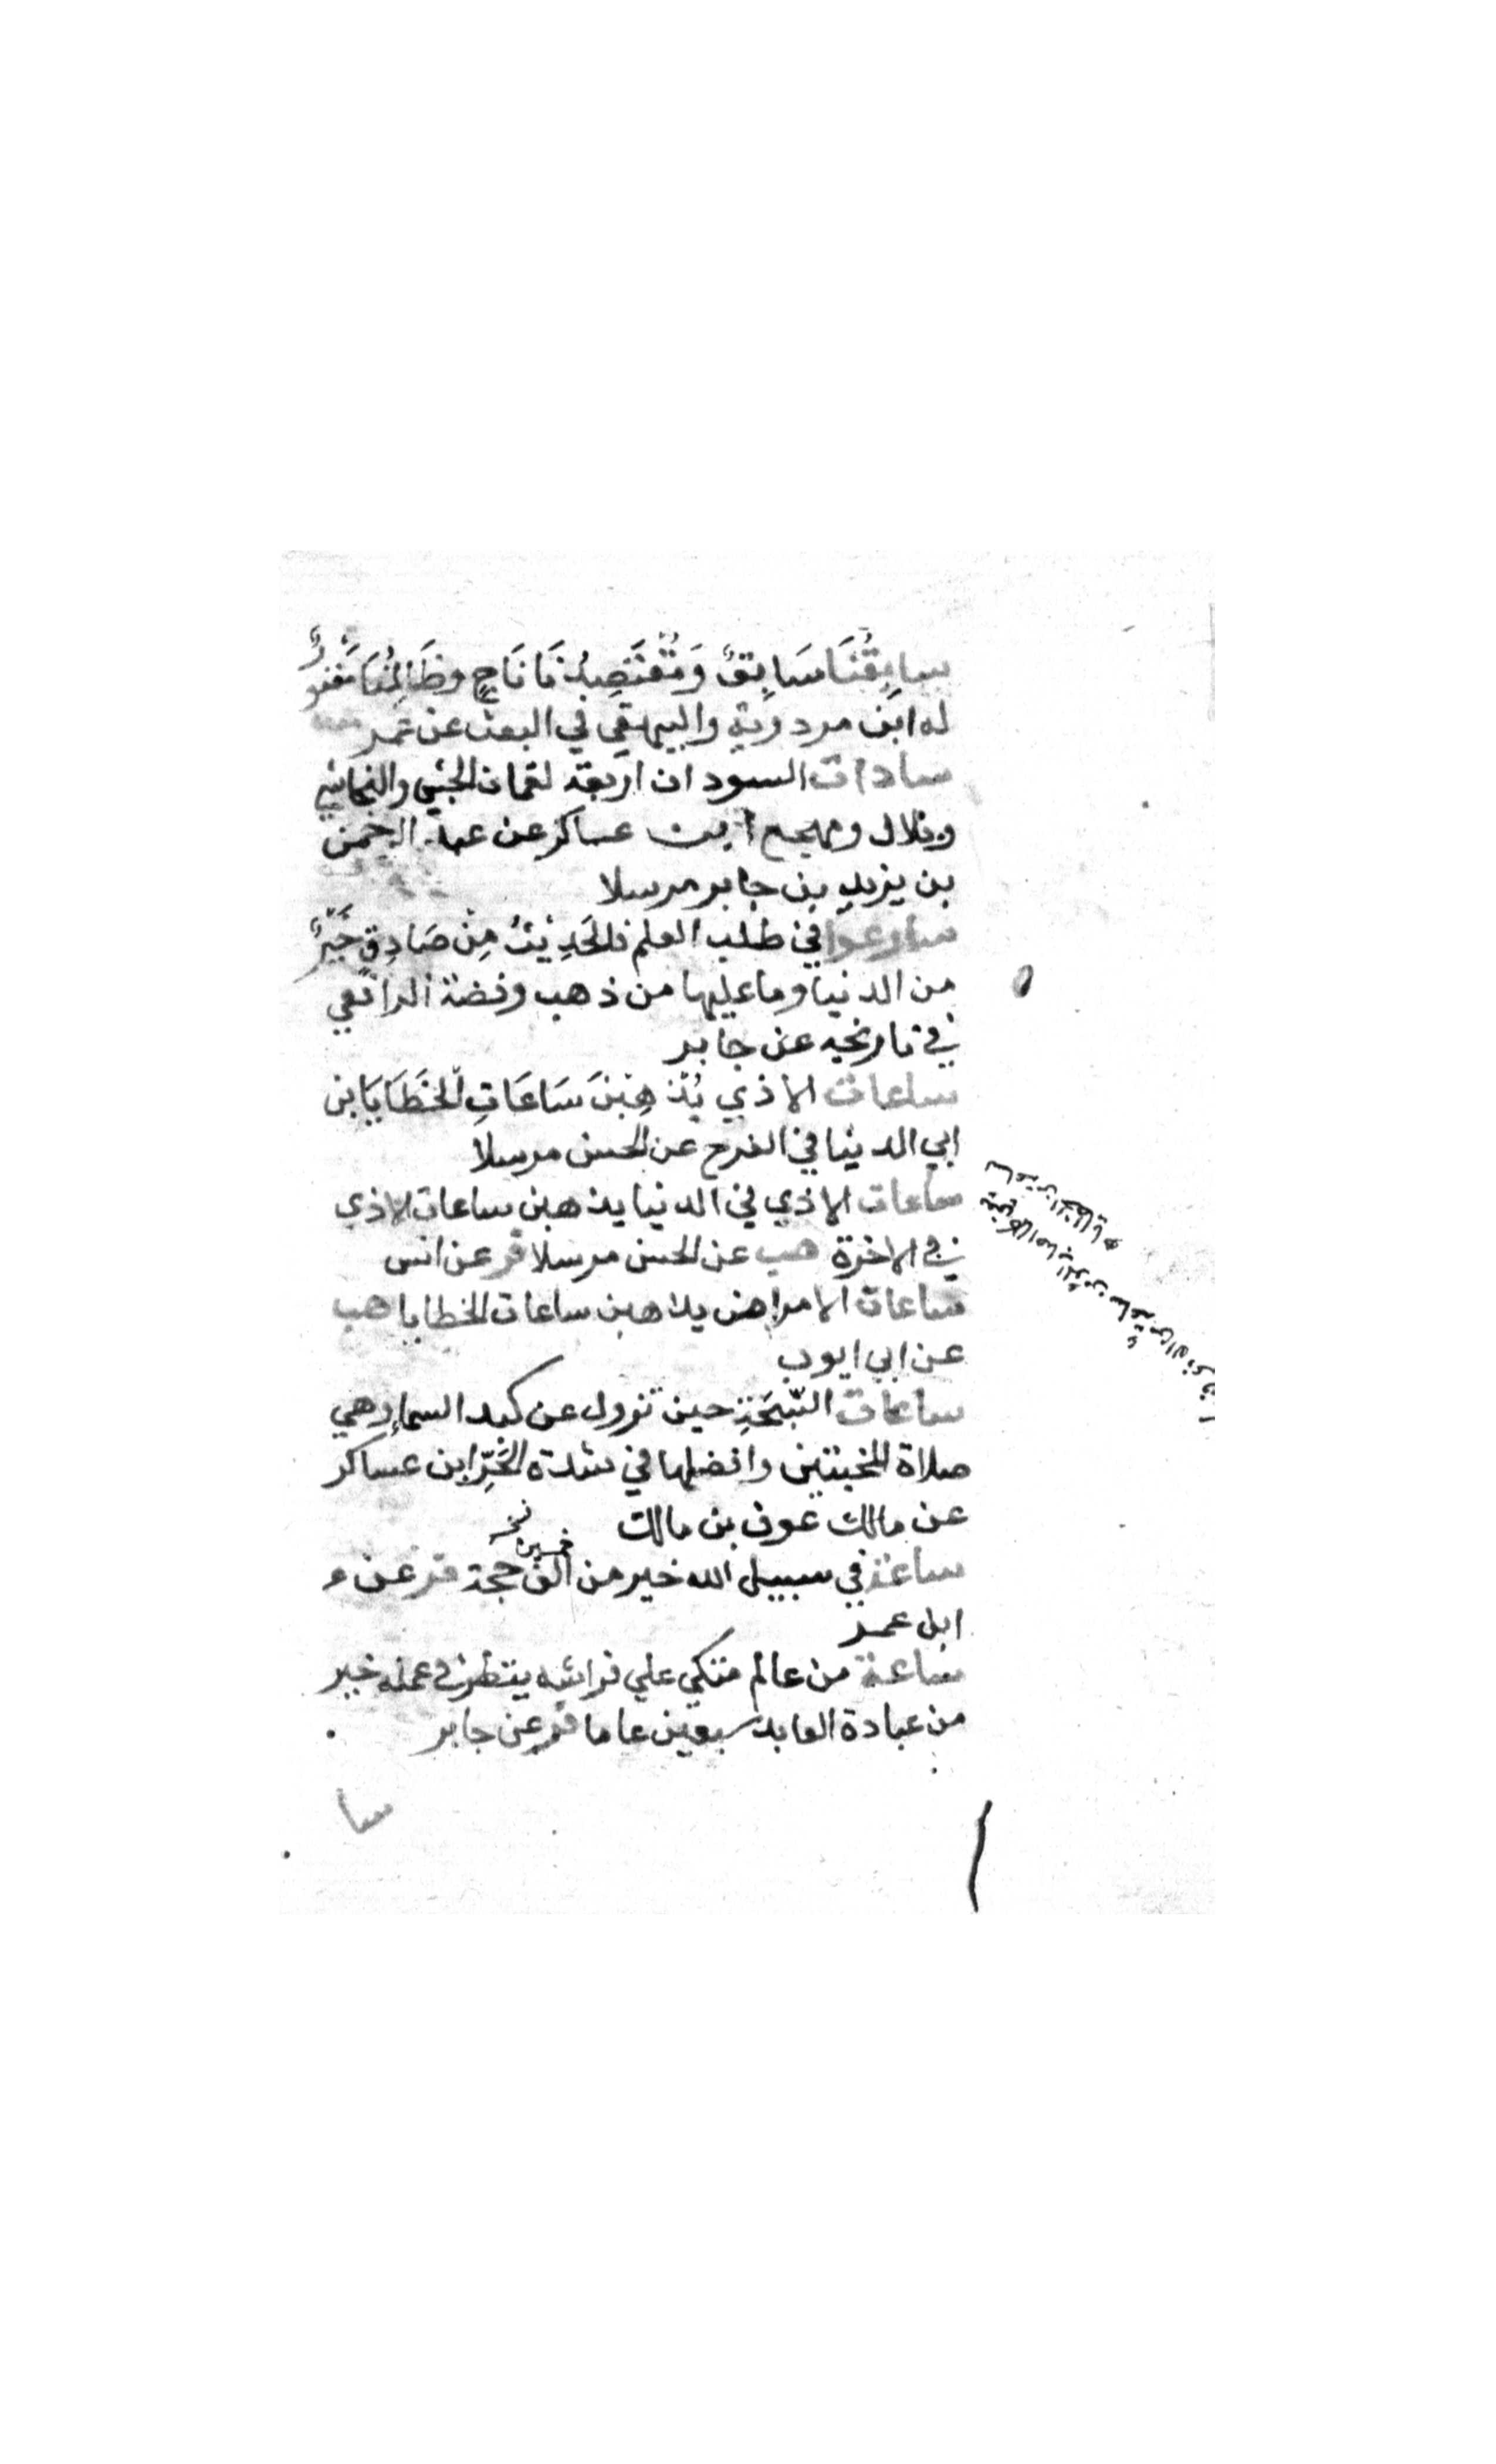 سَابِقُنَا سَابِقٌ وَمُقْتَصِدُنَا نَاجٍ وظَالِمُنَا مَغْفُورٌ
له ابن مردويه والبيهقي في البعث عن عمر
سادات السودان اربعة لقمان الحبشي والنجاشي
وبلال ومهجع ابن عساكر عن عبد الرحمن
بن يزيد بن جابر مرسلا
سارعوا في طلب العلم فالحَدِيْثُ مِنْ صَادِقٍ خَيْرٌ
من الدنيا وما عليها من ذهب وفضة الرافعي
في تاريخه عن جابر
ساعات الاذي يُذْهِبْنَ سَاعَاتِ الخَطَايَا ابن
ابي الدنيا في الفرج عن الحسن مرسلا
ساعات الاذي في الدنيا يذهبن ساعات الاذي
في الاخرة هب عن الحسن مرسلا فر عن انس
ساعات الامراض يذهبن ساعات الخطايا هب
عن ابي ايوب
ساعات السُّبْحَةِ حين تزول عن كبد السماء وهي
صلاة المخبتين وافضلها في شدة الحَرِّ ابن عساكر
عن مالك عوف بن مالك
ساعة في سبيل الله خير من الف حجة فر عن
خمسين نخـ
ابن عمر
ساعة من عالم متكي علي فراشه ينتظر في عمله خير
من عبادة العابد سبعين عاما فر عن جابر
سا